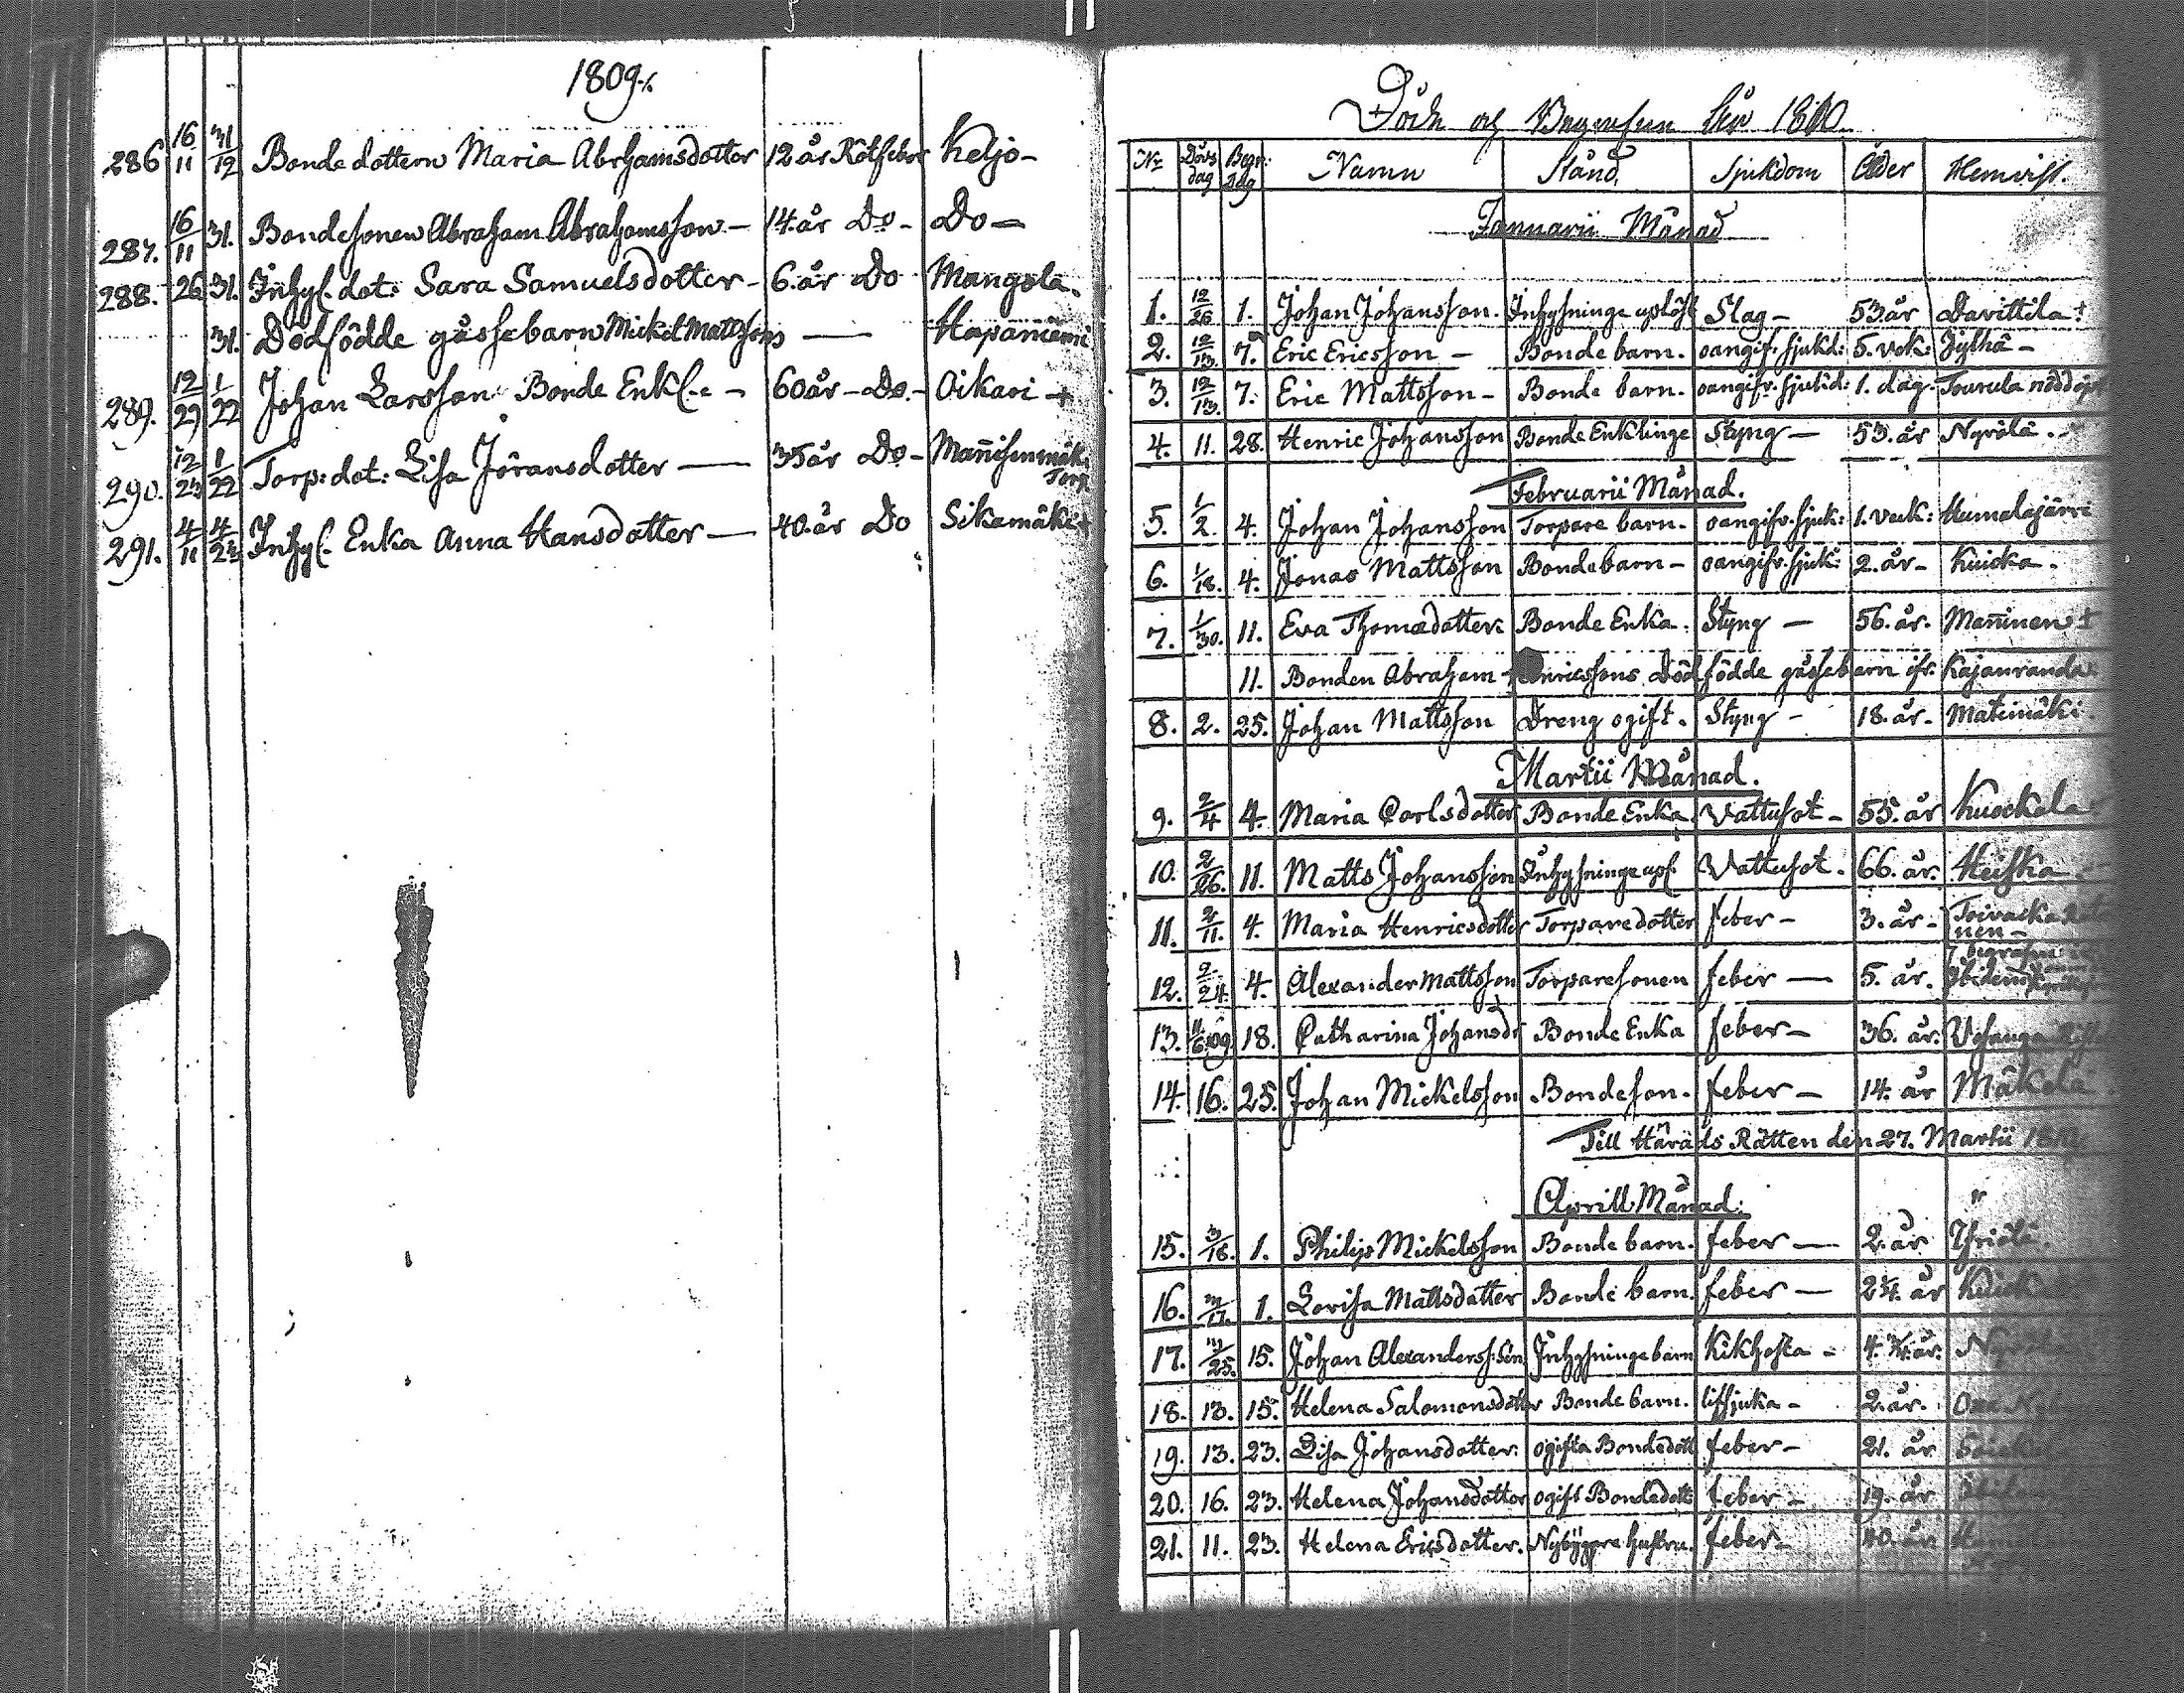 1809.
286 16/11 31/12 Bondedottern Maria Abrahamsdotter 12 år Rötfeber Keljo-
287. 16/11 31. Bondesonen Abraham Abrahamsson - 14. år Do - Do -
288. 26 31. Inhys. dot: Sara Samuelsdotter - 6. år Do Mangola.
31. Dödfödde gåssebarn Mickel Mattssons — Hapaniemi
289. 12/29 1/22 Johan Larsson Bonde Enkl. - 60 år - Do. - Oikari +
290. 12/23 1/22 Torp: dot: Lisa Jöransdotter — 35 år Do - Mañisenmäki Torp
291. 4/11 4/22 Inhys. Enka Anna Hansdotter — 40. år Do Sikamäki +
Döde och Begrafne År 1810
No Döds dag Begr: dag Namn Stånd Sjukdom Ålder Hemvist.
Januarii Månad
1. 12/26 1. Johan Johansson. Inhysninge Slag - 53. år Davittila +
2. 12/13. 7. Eric Ericsson - Bonde barn. oangif. sjukd: 5. vek: Jylhä -
3. 12/13. 7. Eric Mattsson - Bonde barn. oangifv. sjukd: 1. dag. Tourula nöddöpt
4. 11. 28. Henric Johansson Bonde Enklinge Styng — 53. år Nyrölä.
Februarii Månad.
5. 1/2. 4. Johan Johansson Torpare barn. oangifv. sjuk: 1. veck: Humalajärvi
6. 1/18. 4. Jonas Mattsson Bondebarn - oangifv. sjuk: 2. år - Kuicka.
7. 1/30. 11. Eva Thomædotter Bonde Enka. Styng — 56. år. Mañinen +
11. Bonden Abraham Henricssons Dödfödde gåssebarn ifr. Kajanranda
8. 2. 25. Johan Mattsson Dreng ogift. Styng - 18. år. Matinmäki.
Martii Månad.
9. 2/4 4. Maria Carlsdotter Bonde Enka Vattusot - 55. år Kuockala
10. 2/26. 11. Matts Johansson Inhysninge Vattusot. 66. år. Heiska
11. 2/11. 4. Maria Henricsdotter Torparedotter feber - 3. år - Toivacka
nen -
12. 2/24. 4. Alexander Mattsson Torparesonen feber — 5. år. Ibidem
13. 11/6.09. 18. Catharina Johansdr Bonde Enka feber - 36. år. Vesanga
14. 16. 25. Johan Mickelsson Bondeson. feber - 14. år Mäkelä
Till Härads Rätten den 27. Martii 1810
Aprill Månad.
15. 3/18. 1. Philip Mickelsson Bonde barn. feber — 2. år
16. 3/17. 1. Lovisa Mattsdotter Bonde barn. feber — 2 1/4. år Kuick
17. 3/25. 15. Johan Alexanderss: Son Inhysninge barn Kikhosta - 4. 3/4. år. Nyrölä
18. 13. 15. Helena Salomonsdotter Bonde barn. lifsjuka - 2. år.
19. 13. 23. Lisa Johansdotter: ogifta Bondedott feber - 21. år
20. 16. 23. Helena Johansdotter ogift Bondedott feber - 19. år
21. 11. 23. Helena Ericsdotter. Nybyggare hustru. feber - 40. år